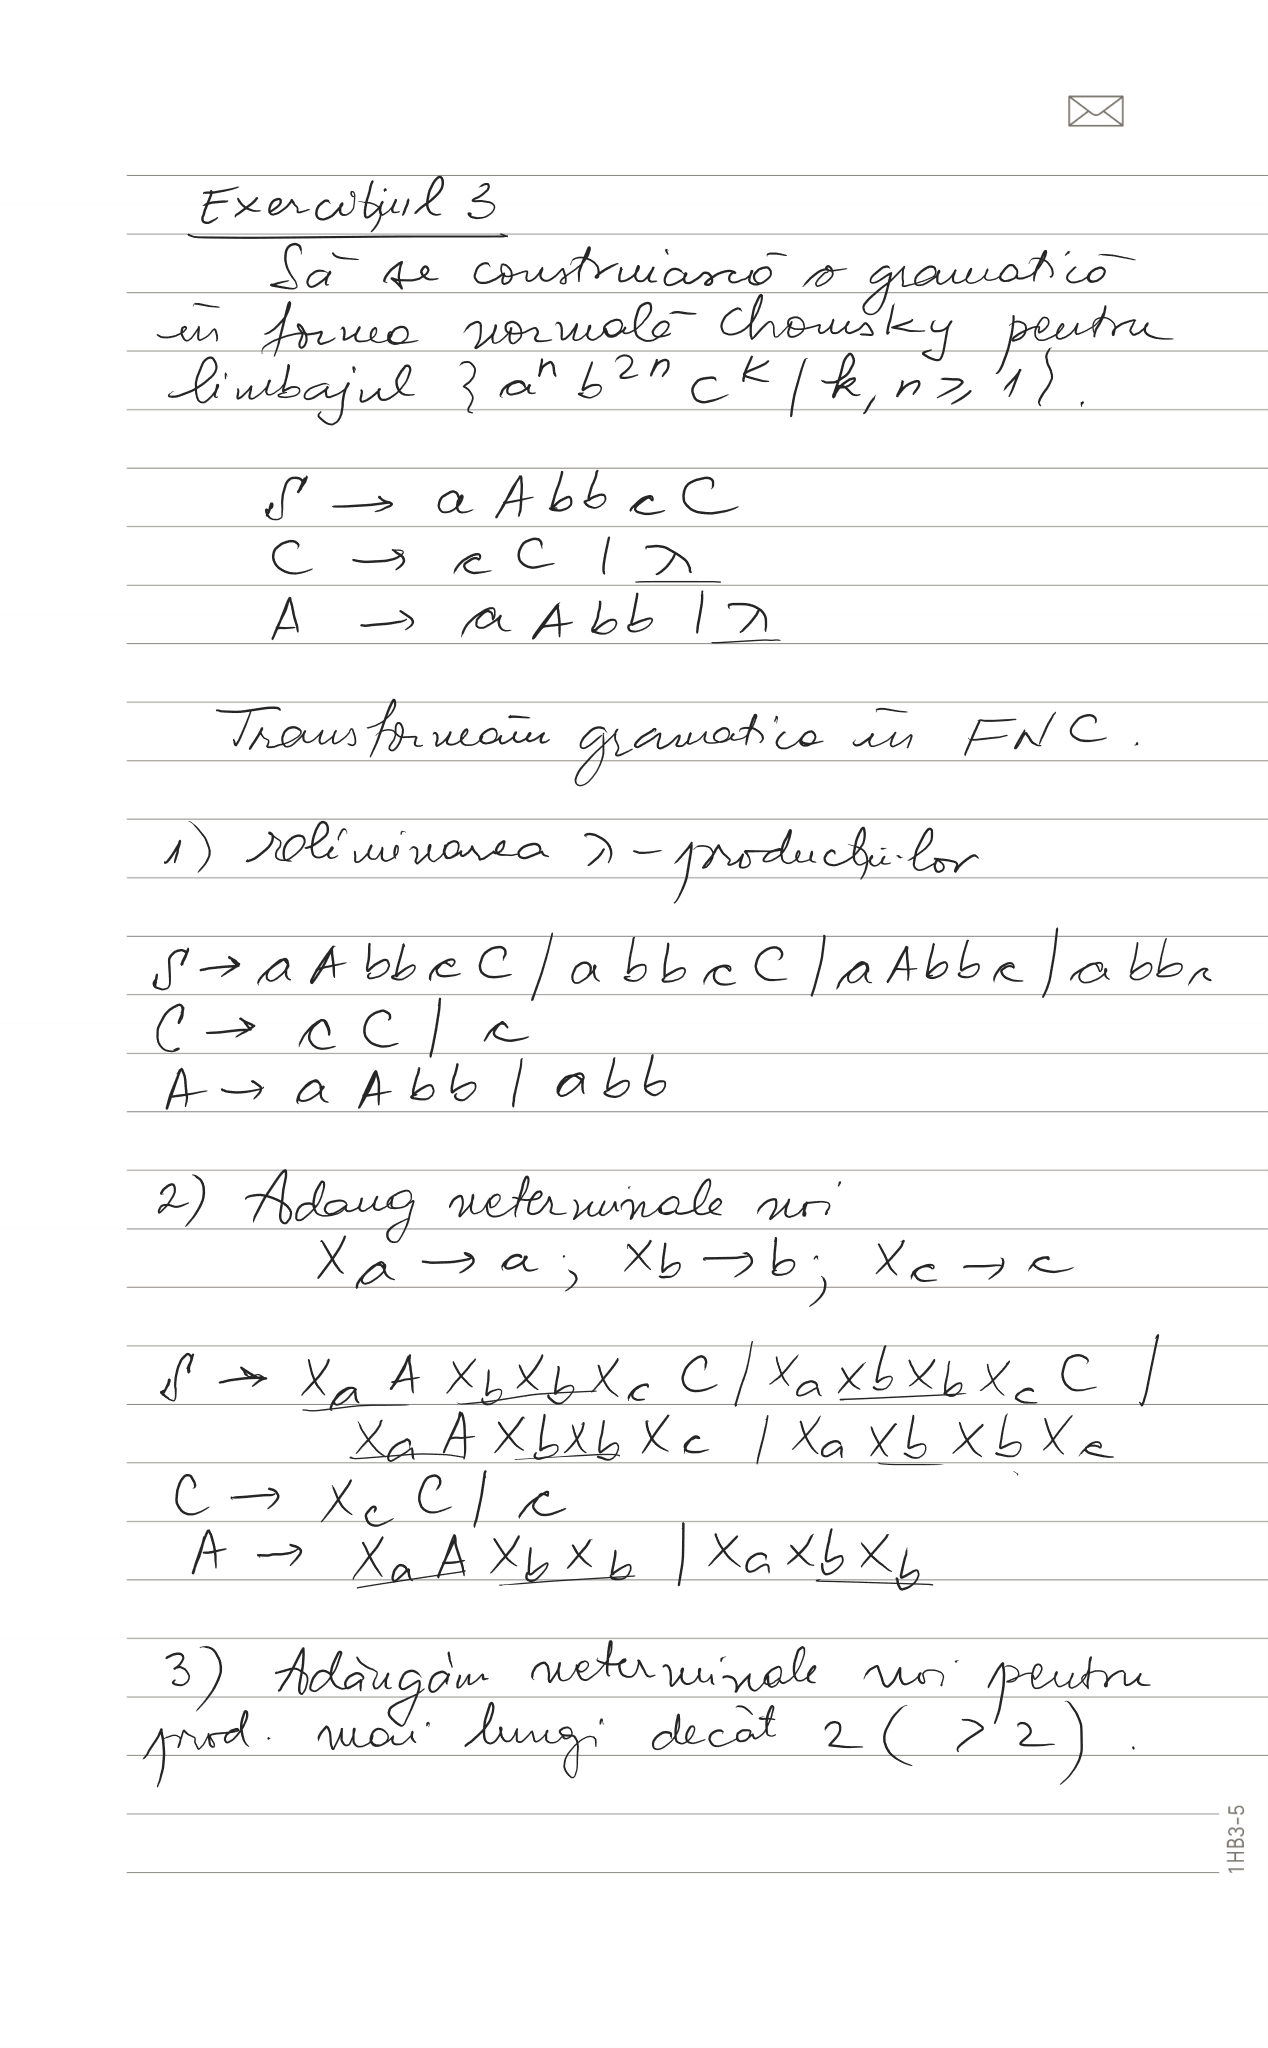 Exercițiul 3
Să se construiască o gramatică
în forma normală Chomsky pentru
limbajul { a^n b^2n c^k / k, n ≥ 1 } .
S → a A b b c C
C → c C | λ
A → a A b b | λ
Transformăm gramatica în FNC .
1) eliminarea λ - producțiilor
S → a A b b c C / a b b c C / a A b b c / a b b c
C → c C / c
A → a A b b / a b b
2) Adaug neterminale noi
Xa → a ; Xb → b ; Xc → c
S → Xa A Xb Xb Xc C / Xa Xb Xb Xc C /
Xa A Xb Xb Xc / Xa Xb Xb Xc
C → Xc C / c
A → Xa A Xb Xb | Xa Xb Xb
3) Adăugăm neterminale noi pentru
prod. mai lungi decât 2 ( > 2 ) .
1HB3-5